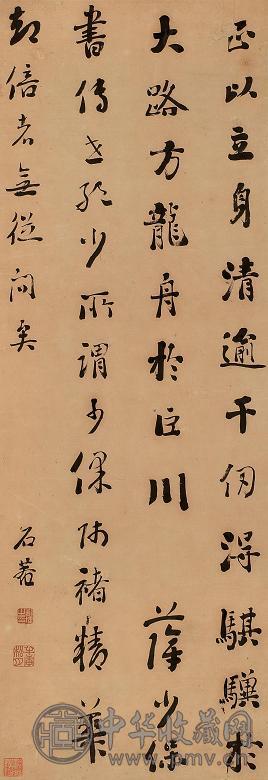 正以立身清逾千仞得騏驥於
大路方龍舟於巨川 薛少保
書傳世少所謂少保師褚精華
却倍者無從問矣
石菴
中华收藏网
www.pmv.cn